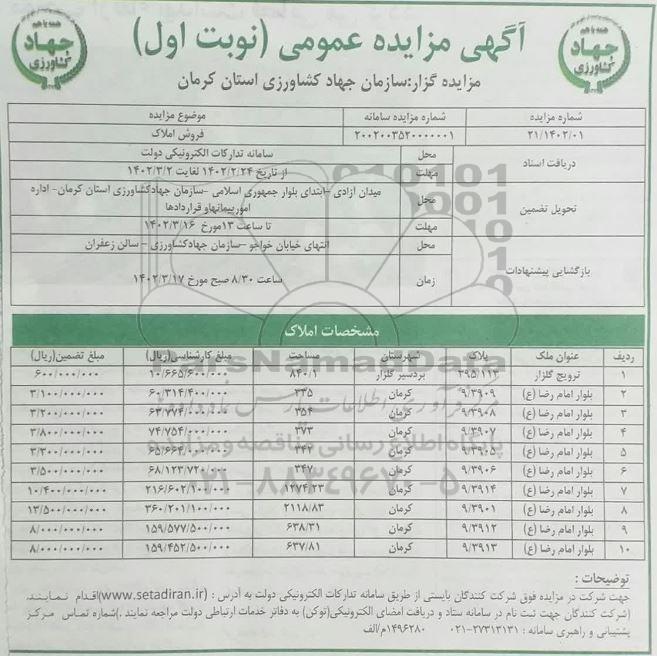 آگهی مزایده عمومی (نوبت اول)
مزایده گزار:سازمان جهاد کشاورزی استان کرمان
همه با هم
جهاد
کشاورزی
همه با هم
جهاد
کشاورزی
شماره مزایده شماره مزایده سامانه موضوع مزایده
۲۱/۱۴۰۲/۰۱ ۲۰۰۲۰۰۳۵۲۰۰۰۰۰۰۱ فروش املاک
دریافت اسناد محل سامانه تدارکات الکترونیکی دولت
مهلت از تاریخ ۱۴۰۲/۲/۲۴ لغایت ۱۴۰۲/۳/۲
تحویل تضمین محل میدان آزادی –ابتدای بلوار جمهوری اسلامی –سازمان جهادکشاورزی استان کرمان- اداره
امورپیمانهاو قراردادها
مهلت تا ساعت ۱۳مورخ ۱۴۰۲/۳/۱۶
بازگشایی پیشنهادات محل انتهای خیابان خواجو –سازمان جهادکشاورزی – سالن زعفران
زمان ساعت ۸/۳۰ صبح مورخ ۱۴۰۲/۳/۱۷
مشخصات املاک
ردیف عنوان ملک پلاک شهرستان مساحت مبلغ کارشناسی(ریال) مبلغ تضمین(ریال)
۱ ترویج گلزار ۳۹۵/۱۱۳ بردسیر گلزار ۸۴۰/۱ ۱۰/۶۶۵/۶۰۰/۰۰۰ ۶۰۰/۰۰۰/۰۰۰
۲ بلوار امام رضا (ع) ۹/۳۹۰۹ کرمان ۳۳۵ ۶۰/۳۱۴/۴۰۰/۰۰۰ ۳/۱۰۰/۰۰۰/۰۰۰
۳ بلوار امام رضا (ع) ۹/۳۹۰۸ کرمان ۳۵۴ ۶۳/۷۷۴/۰۰۰/۰۰۰ ۳/۲۰۰/۰۰۰/۰۰۰
۴ بلوار امام رضا (ع) ۹/۳۹۰۷ کرمان ۳۷۳ ۷۴/۷۵۴/۰۰۰/۰۰۰ ۳/۸۰۰/۰۰۰/۰۰۰
۵ بلوار امام رضا (ع) ۹/۳۹۰۵ کرمان ۳۴۲ ۶۵/۶۶۴/۰۰۰/۰۰۰ ۳/۳۰۰/۰۰۰/۰۰۰
۶ بلوار امام رضا (ع) ۹/۳۹۰۶ کرمان ۳۴۷ ۶۸/۱۲۳/۷۲۰/۰۰۰ ۳/۵۰۰/۰۰۰/۰۰۰
۷ بلوار امام رضا (ع) ۹/۳۹۱۴ کرمان ۱۲۷۴/۲۳ ۲۱۶/۶۰۲/۱۰۰/۰۰۰ ۱۰/۴۰۰/۰۰۰/۰۰۰
۸ بلوار امام رضا (ع) ۹/۳۹۰۱ کرمان ۲۱۱۸/۸۳ ۳۶۰/۲۰۱/۱۰۰/۰۰۰ ۱۳/۵۰۰/۰۰۰/۰۰۰
۹ بلوار امام رضا (ع) ۹/۳۹۱۲ کرمان ۶۳۸/۳۱ ۱۵۹/۵۷۷/۵۰۰/۰۰۰ ۸/۰۰۰/۰۰۰/۰۰۰
۱۰ بلوار امام رضا (ع) ۹/۳۹۱۳ کرمان ۶۳۷/۸۱ ۱۵۹/۴۵۲/۵۰۰/۰۰۰ ۸/۰۰۰/۰۰۰/۰۰۰
ParsNamadData
پایگاه اطلاع رسانی مناقصه و مزایده
۰۲۱-۸۸۳۴۹۶۷۰-۵
توضیحات :
جهت شرکت در مزایده فوق شرکت کنندگان بایستی از طریق سامانه تدارکات الکترونیکی دولت به آدرس : (www.setadiran.ir)اقدام نمایند.
(شرکت کنندگان جهت ثبت نام در سامانه ستاد و دریافت امضای الکترونیکی(توکن) به دفاتر خدمات ارتباطی دولت مراجعه نمایند .)شماره تماس مرکز
پشتیبانی و راهبری سامانه : ۲۷۳۱۳۱۳۱-۰۲۱ ۱۴۹۶۲۸۰م/الف